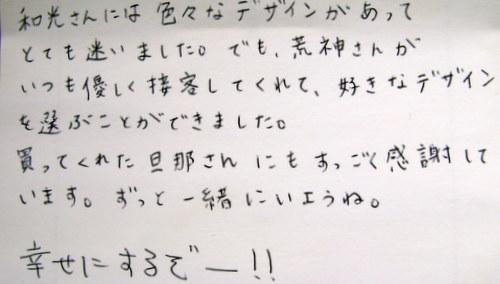 和光さんには色々なデザインがあって
とても迷いました。でも、荒神さんが
いつも優しく接客してくれて、好きなデザイン
を選ぶことができました。
買ってくれた旦那さんにもすっごく感謝して
います。ずっと一緒にいようね。
幸せにするぞー!!